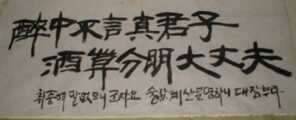 醉中不言真君子
酒算分明大丈夫
취중에 말없으니 군자요 술값 계산분명하니 대장부다.